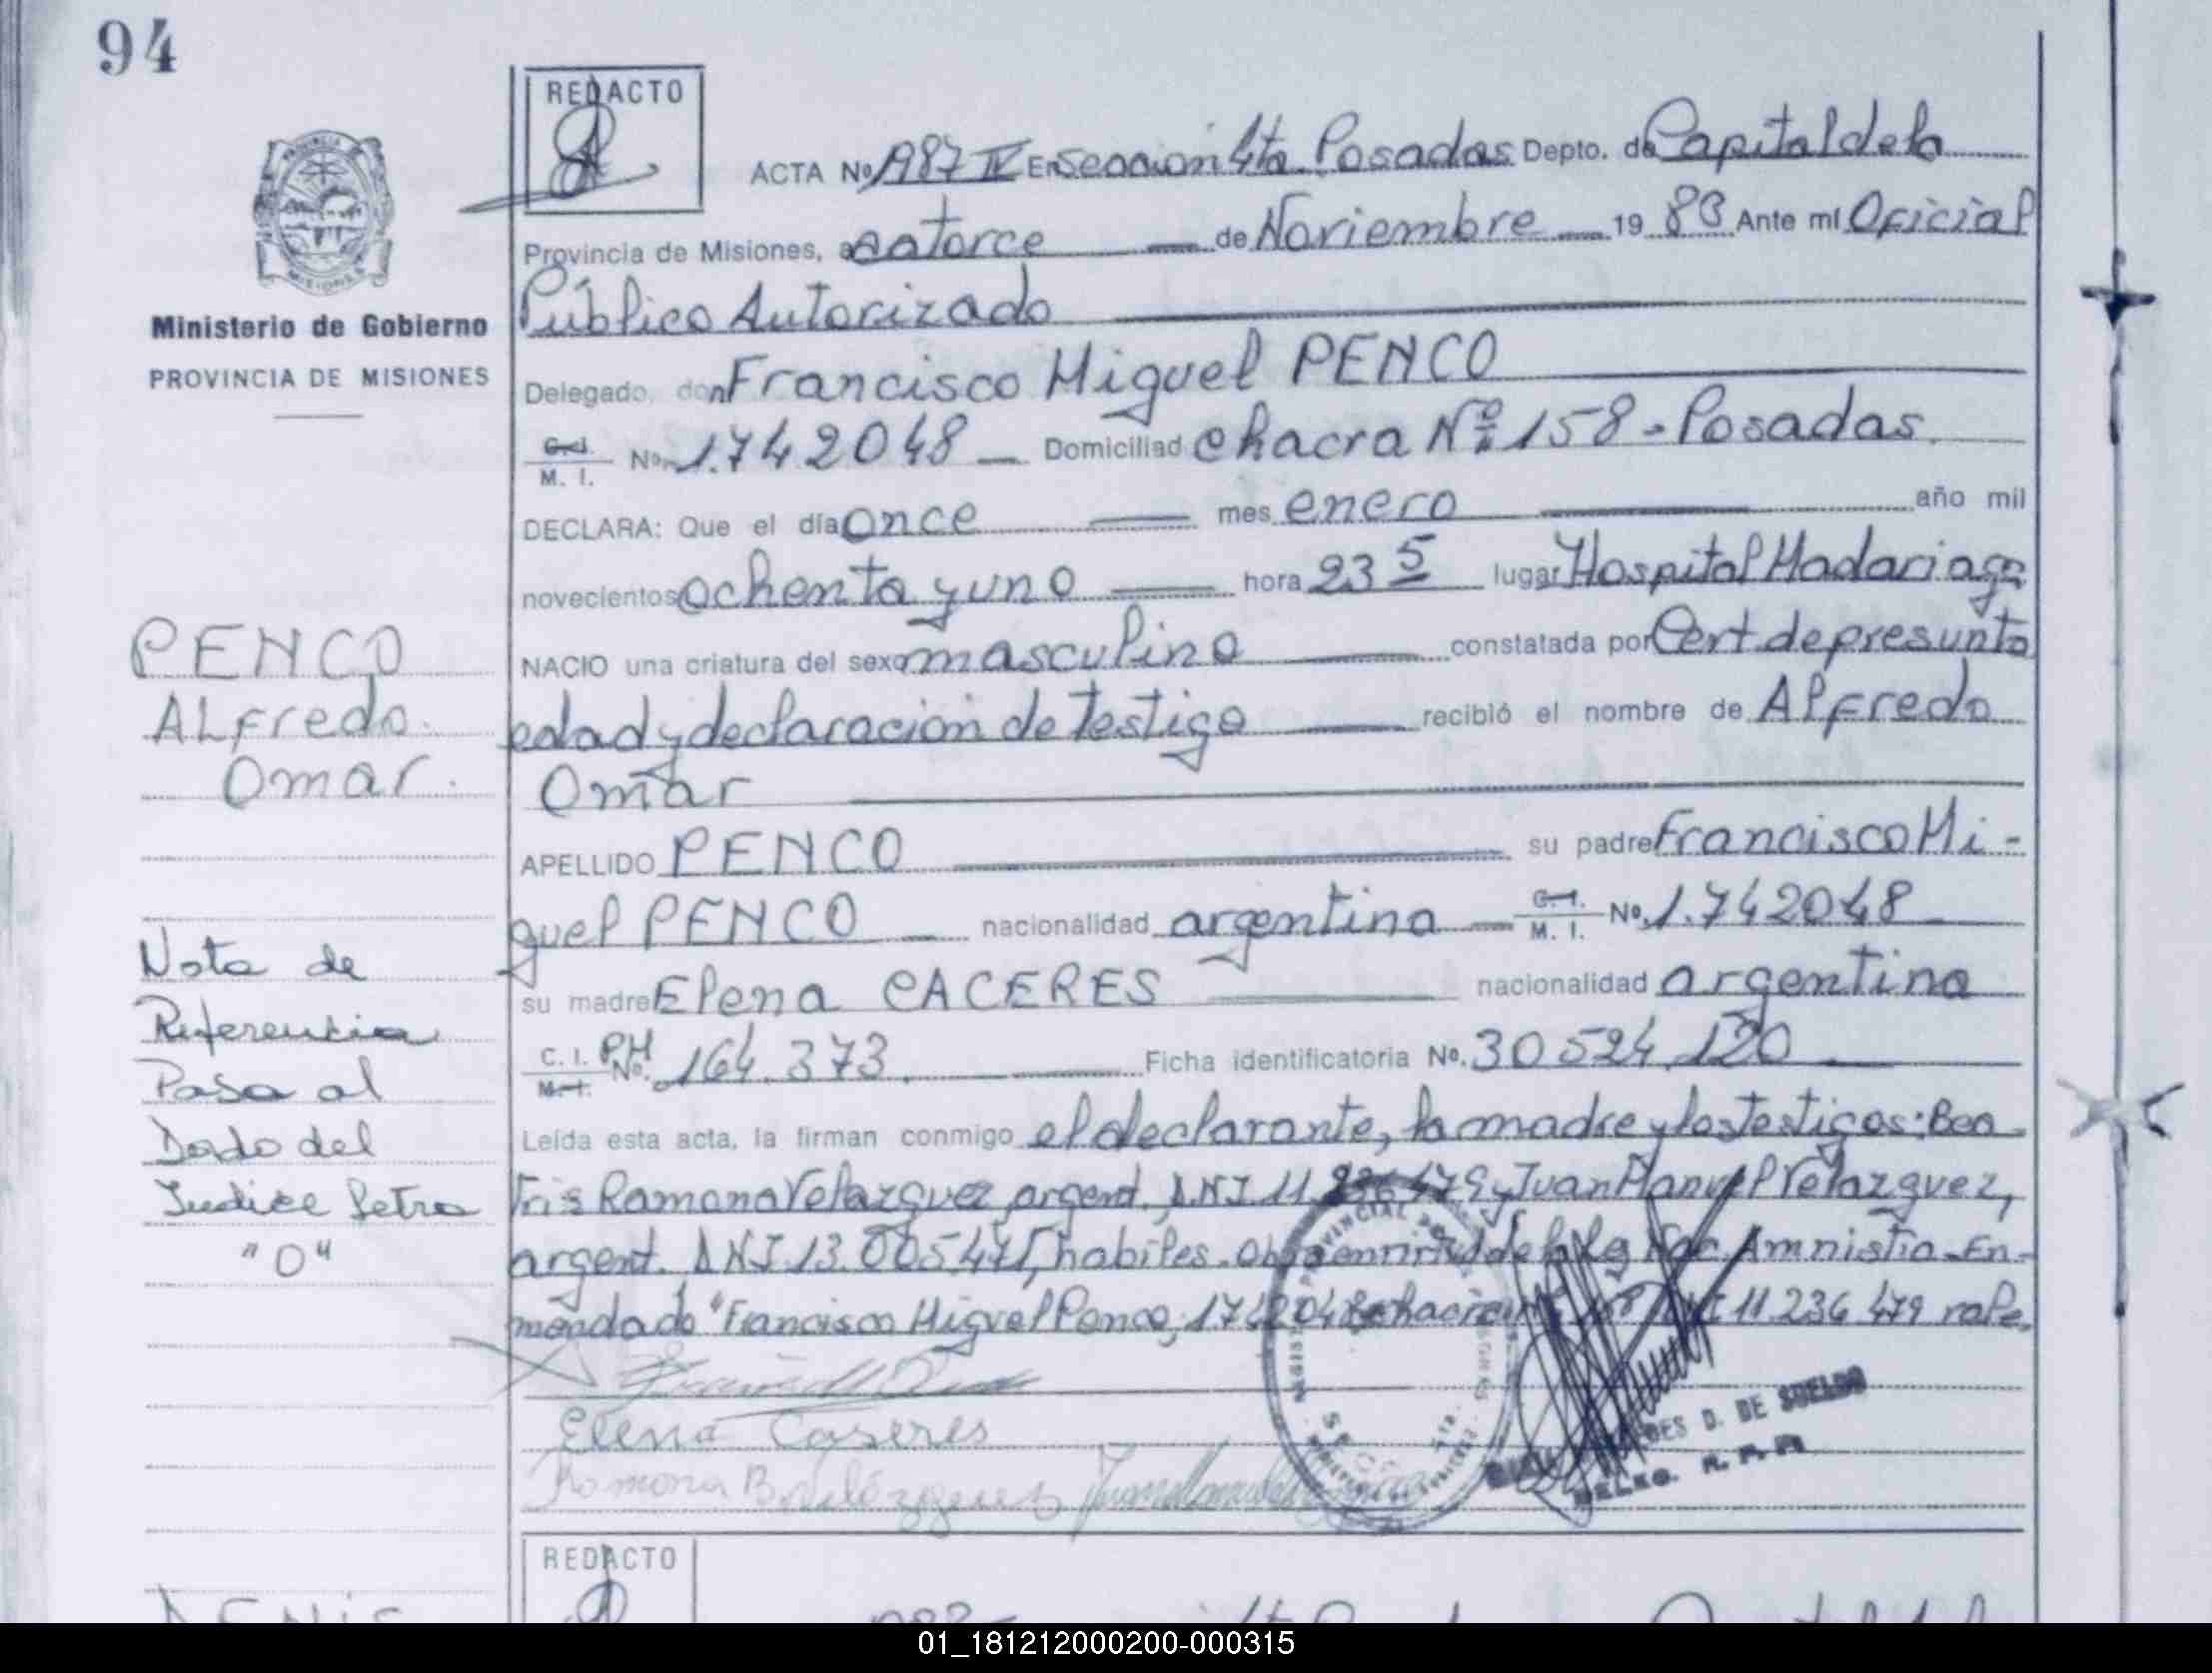 94
REDACTO
ACTA Nº 1987 IV En Sección 4ta. Posadas Depto. de Capital de la
Provincia de Misiones, a catorce de Noviembre 19 83 Ante mí Oficial
Público Autorizado
Ministerio de Gobierno
PROVINCIA DE MISIONES
Delegado, don Francisco Miguel PENCO
C. I. M. I. Nº 1.742048 Domiciliad Chacra Nº 158 - Posadas.
DECLARA: Que el día once mes enero año mil
novecientos ochenta y uno hora 23 5 lugar Hospital Madariaga
NACIO una criatura del sexo masculino constatada por Cert. de presunta
edad y declaración de testigo recibió el nombre de Alfredo
Omar
APELLIDO PENCO su padre Francisco Mi-
guel PENCO nacionalidad argentina C. I. M. I. Nº 1.742048
su madre Elena CACERES nacionalidad argentina
C. I. M. I. PH Nº. 164.373. Ficha identificatoria Nº. 30524.120
Leída esta acta, la firman conmigo el declarante, la madre y los testigos: Bea
triz Ramona Velazquez, argent. DNI 11. y Juan Manuel Velazquez,
argent. DNI 13.005.475, habiles. de la Amnistia - En-
mendado "Francisco Miguel Penco, 1742048 chacra 11 236 479 vale.
Elena Caseres
Ramona B Velázquez
PENCO
ALfredo
Omar.
Nota de
Referencia
Pasa al
Dado del
Indice letra
"O"
D. DE SUELDO
REDACTO
01_181212000200-000315